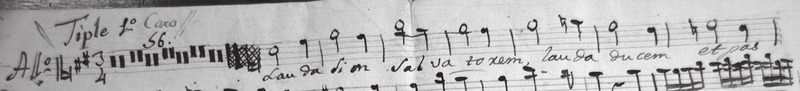 Tiple 1º Coro
56.
All.º 3 4
Lauda sion salvatorem, lauda ducem et pas